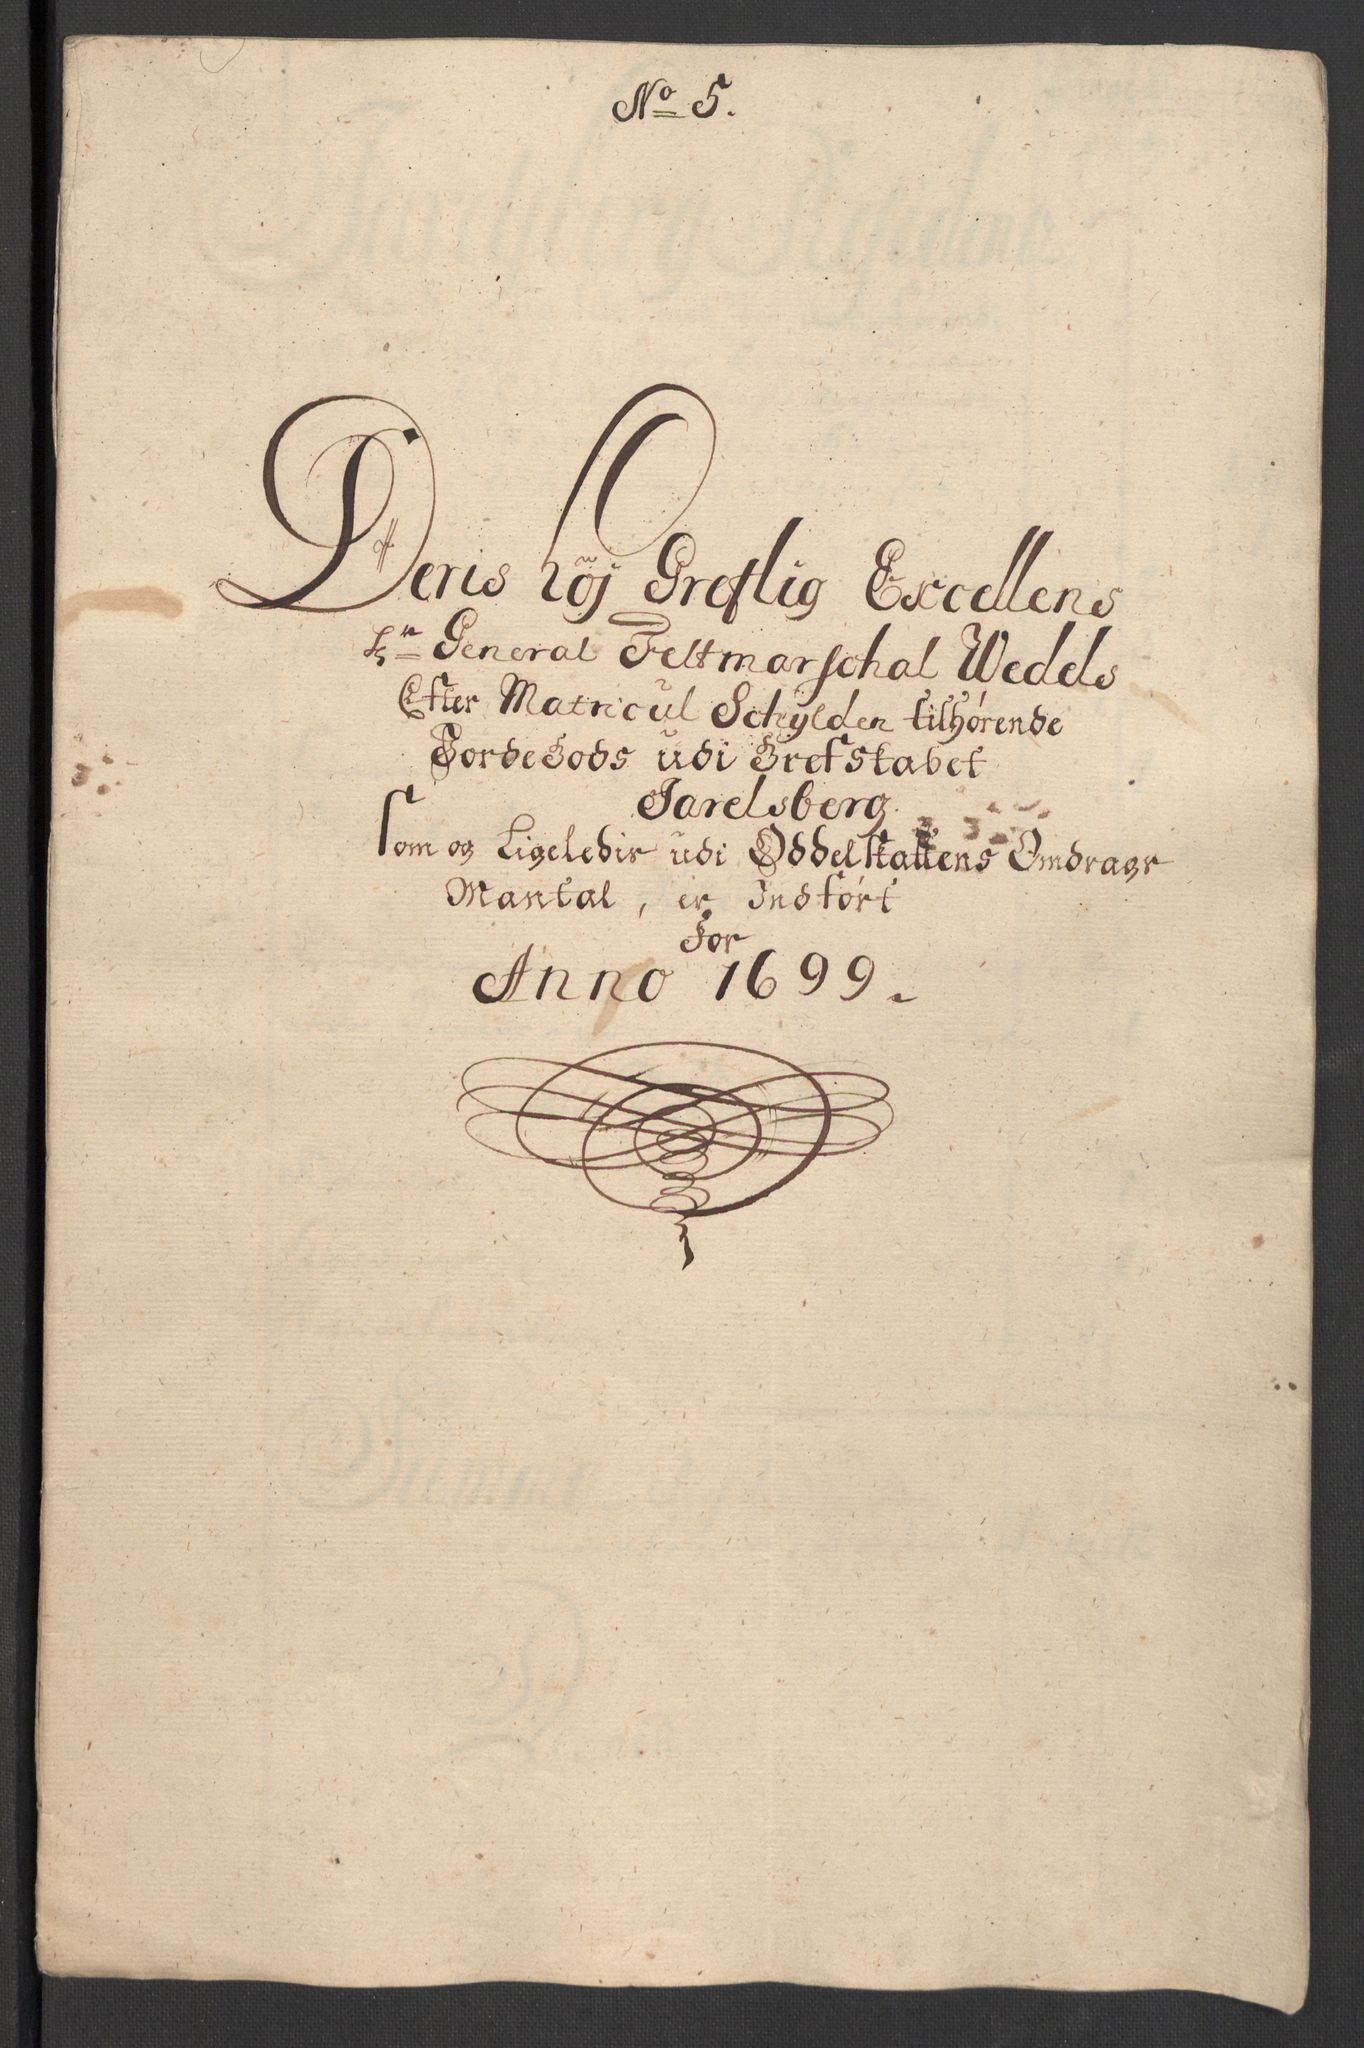 No 5.
Deris Höj Greflig Excellens
Hr General Feltmarschal Wedels
Efter Matricul Schylden tilhörende
JordeGods udi Grefskabet
Jarelsberg
Som og Ligeledis udi Oddelskattens Omdragr
Mantal, er Indfört
For
Anno 1699.